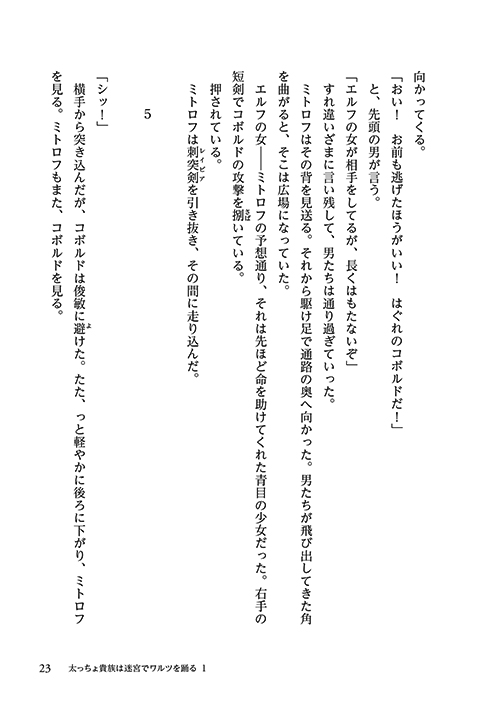 向かってくる。
「おい！　お前も逃げたほうがいい！　はぐれのコボルドだ！」
と、先頭の男が言う。
「エルフの女が相手をしてるが、長くはもたないぞ」
すれ違いざまに言い残して、男たちは通り過ぎていった。
ミトロフはその背を見送る。それから駆け足で通路の奥へ向かった。男たちが飛び出してきた角
を曲がると、そこは広場になっていた。
エルフの女——ミトロフの予想通り、それは先ほど命を助けてくれた青目の少女だった。右手の
短剣でコボルドの攻撃を捌さばいている。
押されている。
ミトロフは刺突剣レイピアを引き抜き、その間に走り込んだ。
5
「シッ！」
横手から突き込んだが、コボルドは俊敏に避よけた。たた、っと軽やかに後ろに下がり、ミトロフ
を見る。ミトロフもまた、コボルドを見る。
23　太っちょ貴族は迷宮でワルツを踊る 1